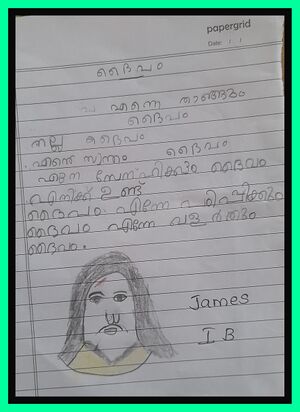 papergrid
Date: / /
ദൈവം
എന്നെ താങ്ങും
ദൈവം
നല്ല ദൈവം
എന്റെ സ്വന്തം ദൈവം
എന്നെ സ്നേഹിക്കും ദൈവം
എനിക്ക് ഉണ്ട്
ദൈവം എന്നേ രക്ഷിക്കും
ദൈവം എന്നേ വളർത്തും
ദൈവം.
James
I B